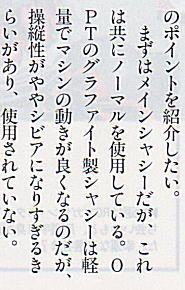 のポイントを紹介したい。
　まずはメインシャシーだが、これ
は共にノーマルを使用している。Ｏ
ＰＴのグラファイト製シャシーは軽
量でマシンの動きが良くなるのだが、
操縦性がややシビアになりすぎるき
らいがあり、使用されていない。